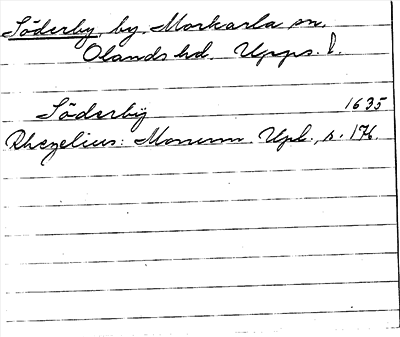 Söderby, by, Morkarla sn.
Olands hd. Upps. l.
Söderbÿ 1635
Rhezelius: Monum. Upl., s. 176.